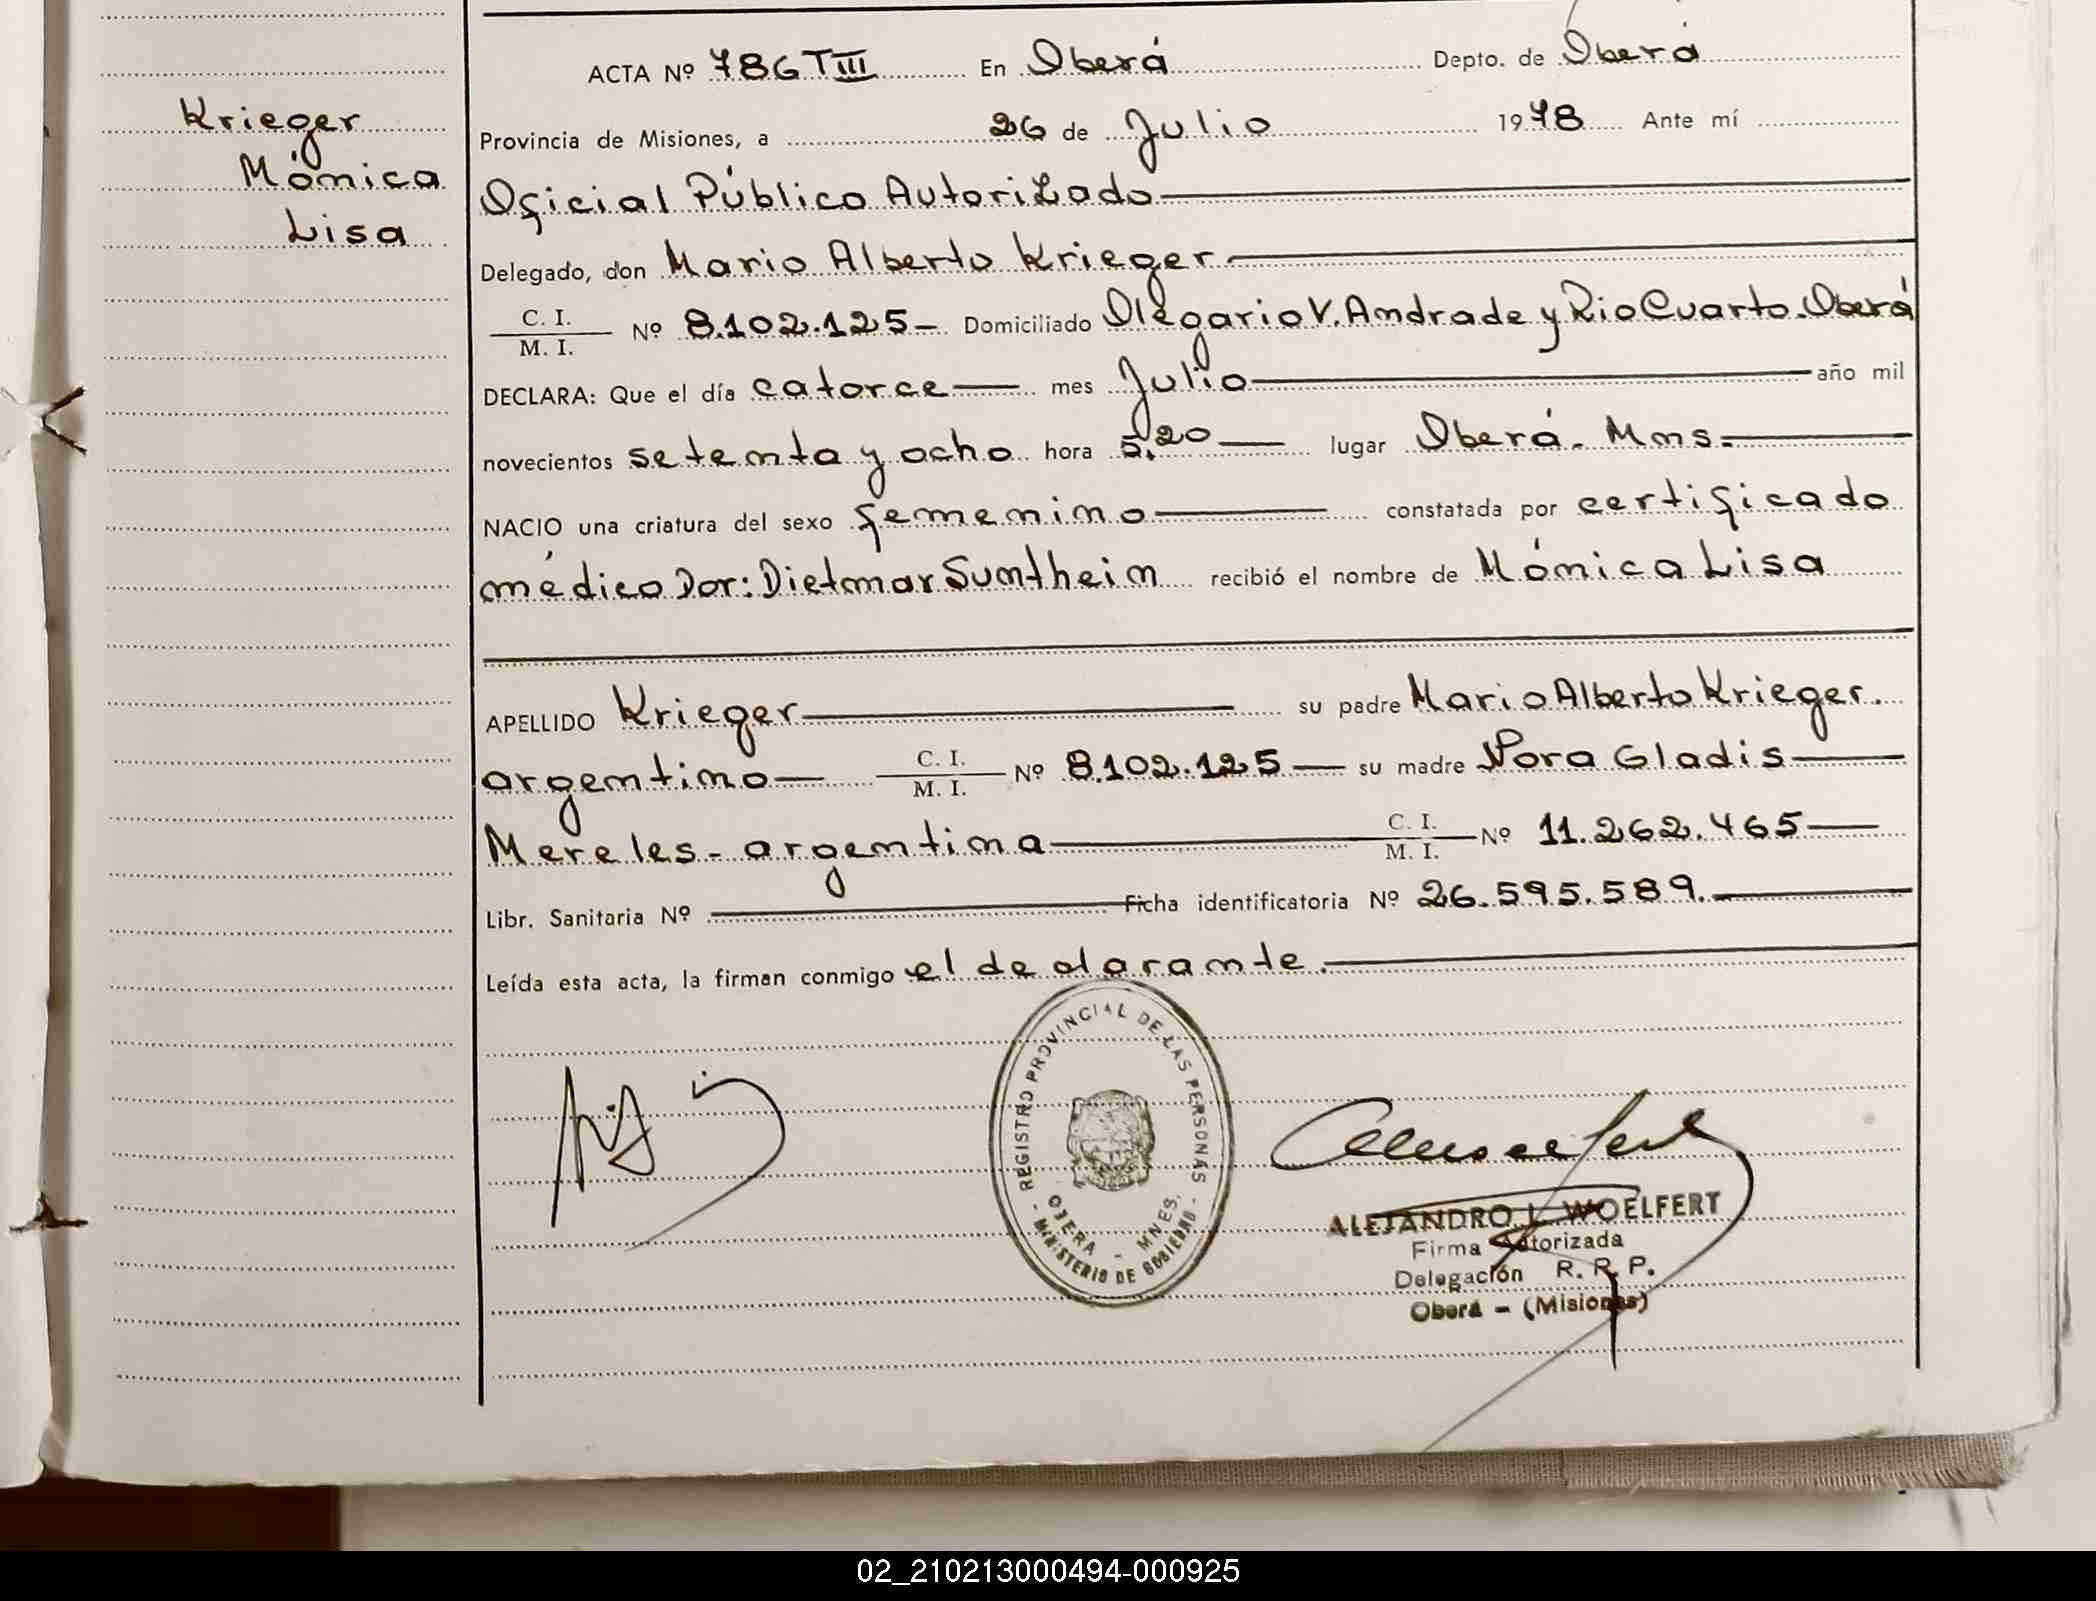 Krieger
Mónica
Lisa
ACTA Nº 786 TIII En Oberá Depto. de Oberá
Provincia de Misiones, a 26 de Julio 1978 Ante mí
Oficial Público Autorizado
Delegado, don Mario Alberto Krieger
C. I.
M. I. Nº 8.102.125 - Domiciliado Olegario V. Andrade y Rio Cuarto. Oberá
DECLARA: Que el día catorce mes Julio año mil
novecientos setenta y ocho hora 5,20 lugar Oberá. Mns.
NACIO una criatura del sexo femenino constatada por certificado
médico Dor: Dietmar Suntheim recibió el nombre de Mónica Lisa
APELLIDO Krieger su padre Mario Alberto Krieger.
argentino C. I.
M. I. Nº 8.102.125 su madre Nora Gladis
Mereles - argentina C. I.
M. I. Nº 11.262.465
Libr. Sanitaria Nº Ficha identificatoria Nº 26.595.589.
Leída esta acta, la firman conmigo el declarante.
REGISTRO PROVINCIAL DE LAS PERSONAS
OBERA - MNES.
- MINISTERIO DE GOBIERNO -
ALEJANDRO L. WOELFERT
Firma Autorizada
Delegación R. R. P.
Oberá - (Misiones)
02_210213000494-000925